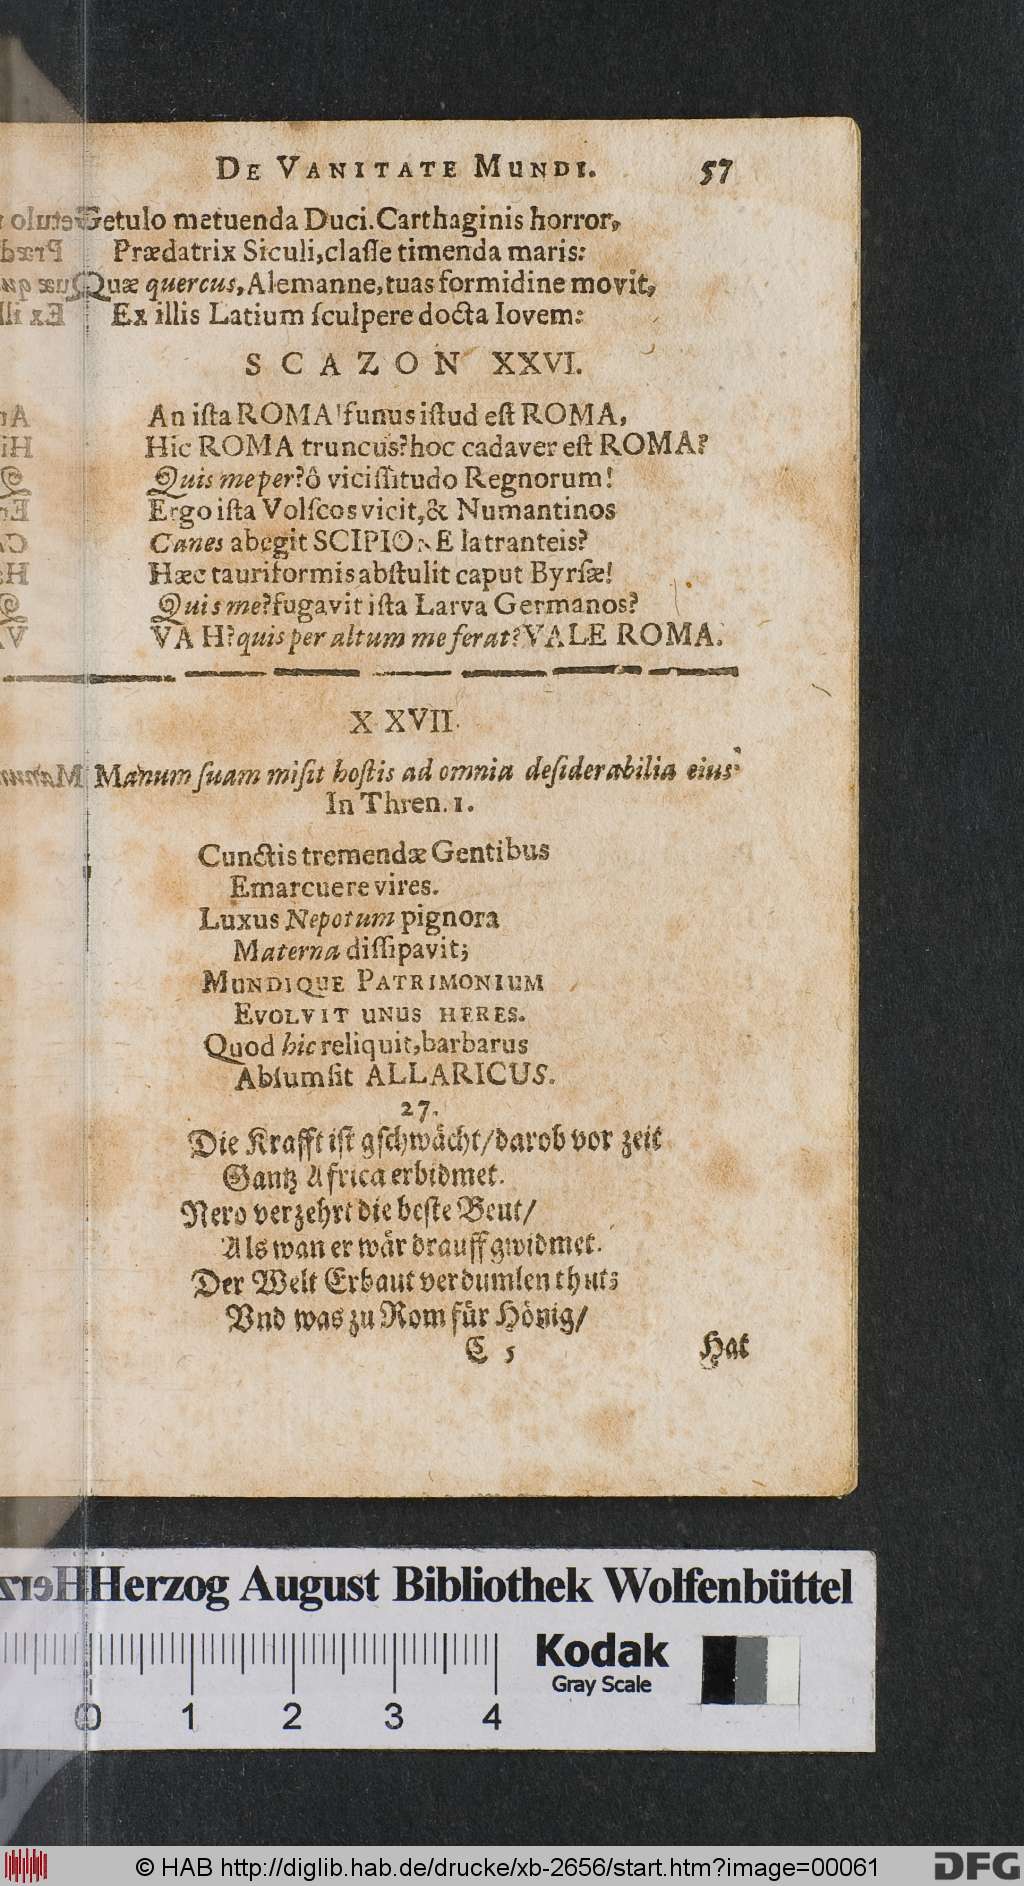 DE VANITATE MUNDI. 57
Getulo metuenda Duci. Carthaginis horror,
Prædatrix Siculi, claſſe timenda maris:
Quæ quercus, Alemanne, tuas formidine movit,
Ex illis Latium ſculpere docta Iovem:
SCAZON XXVI.
An iſta ROMA! funus iſtud eſt ROMA,
Hic ROMA truncus? hoc cadaver eſt ROMA?
Quis me per? ô viciſſitudo Regnorum!
Ergo iſta Volſcos vicit, & Numantinos
Canes abegit SCIPIONE latranteis?
Hæc tauriformis abſtulit caput Byrſæ!
Quis me? fugavit iſta Larva Germanos?
VAH? quis per altum me ferat? VALE ROMA.
XXVII.
Manum ſuam miſit hoſtis ad omnia deſiderabilia eius.
In Thren. 1.
Cunctis tremendæ Gentibus
Emarcuere vires.
Luxus Nepotum pignora
Materna diſſipavit;
MUNDIQUE PATRIMONIUM
EVOLVIT UNUS HERES.
Quod hic reliquit, barbarus
Abſumſit ALLARICUS.
27.
Die Krafft iſt gſchwächt/ darob vor zeit
Gantz Africa erbidmet.
Nero verzehrt die beſte Beut/
Als wan er wår drauff gwidmet.
Der Welt Erbaut verdumlen thut;
Vnd was zu Rom für Hönig/
C 5 Hat
Herzog August Bibliothek Wolfenbüttel
Kodak
Gray Scale
0 1 2 3 4
© HAB http://diglib.hab.de/drucke/xb-2656/start.htm?image=00061
DFG